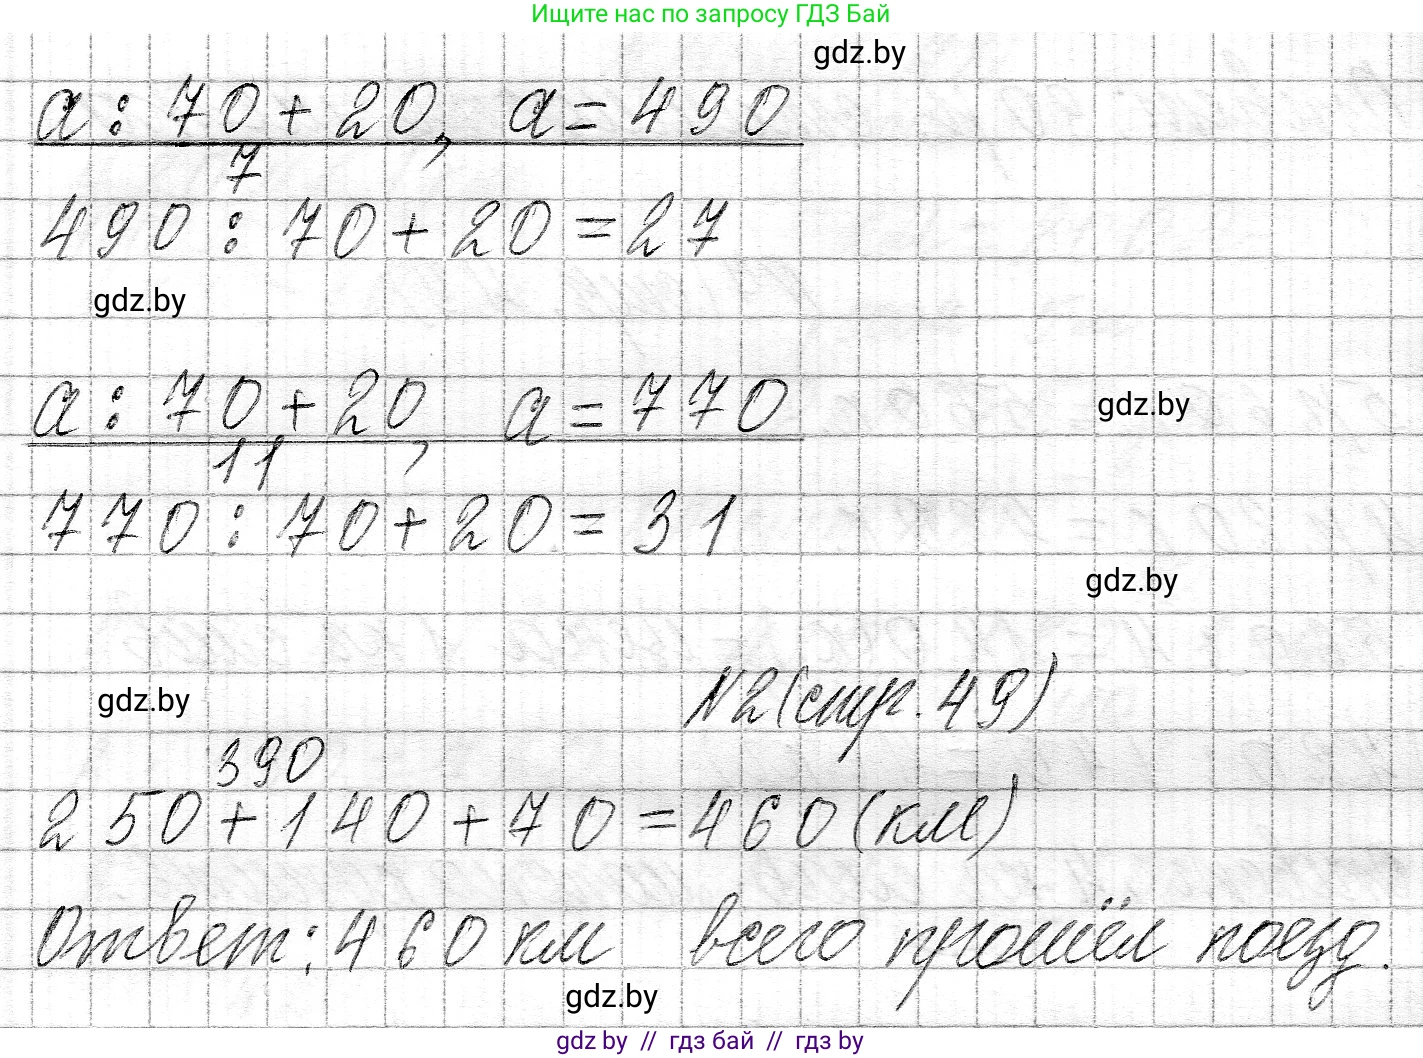 Ищите нас по запросу ГДЗ Бай
gdz.by
a : 70 + 20, a = 490
7
490 : 70 + 20 = 27
gdz.by
a : 70 + 20, a = 770
gdz.by
11
770 : 70 + 20 = 31
gdz.by
N2 (стр. 49)
gdz.by
390
250 + 140 + 70 = 460 (км)
Ответ: 460 км всего прошёл поезд.
gdz.by
gdz by // гдз бай // гдз by